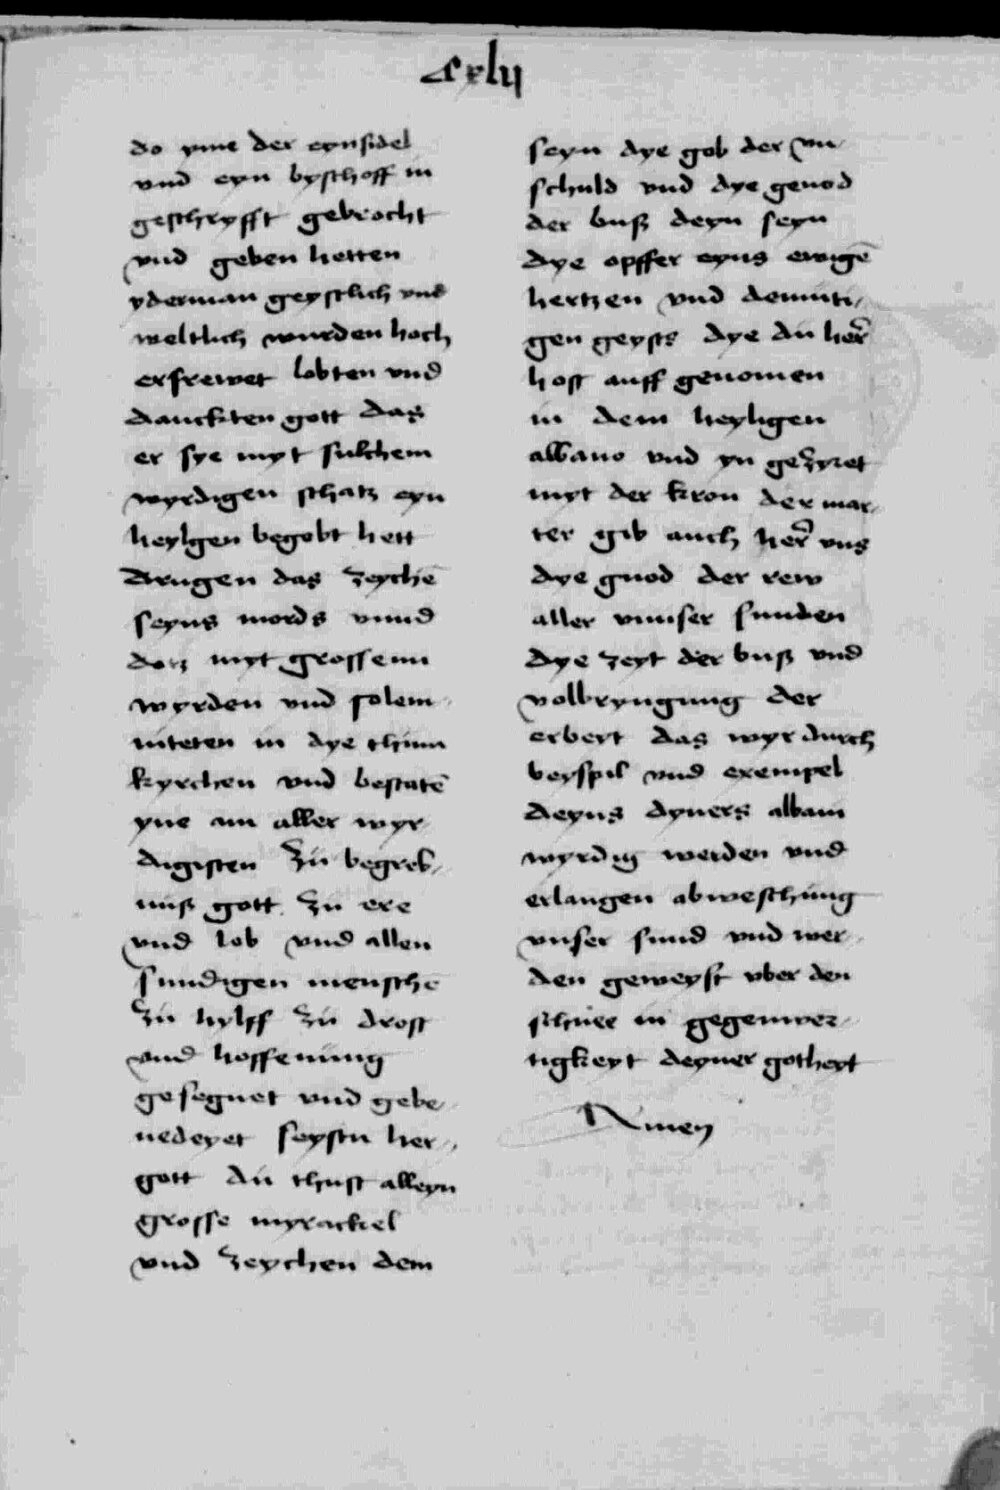 Cxlij
do yme der eynsidel
vnd eyn bysthoff in
gesthryfft gebrocht
vnd geben hetten
yderman geystlich vnd
weltlich wurden hoch
erfrewet lobten vnd
danckten gott das
er sye myt sulchem
wyrdigen schatz eyn
heylgen begobt hett
drugen das zeychē
seyns mords vnnd
dotz myt grossenn
wyrden vnd solem-
niteten in dye thum
kyrchen vnd bestatē
yne am aller wyr-
digisten zu begreb-
nuß gott zu ere
vnd lob vnd allen
sundigen mensche
zu hylff zu drost
vnd hoffenung
gesegnet vnd gebe-
nedeyet seystu her-
gott du thust alleyn
grosse myrackel
vnd zeychen dem
seyn dye gob der vn-
schuld vnd dye genod
der buß deyn seyn
dye opffer eyns ewigē
hertzen vnd demuti-
gen geysts dye du her̄
host auff genomen
in dem heyligen
albano vnd yn gezyret
myt der kron der mar-
ter gib auch her̄ vns
dye gnod der rew
aller vnnser sunden
dye zeyt der buß vnd
volbryngung der
erbeyt das wyr durch
beyspil vnd exempel
deyns dyners albani
wyrdig werden vnd
erlangen abwesthung
vnser sund vnd wer-
den geweyst vber den
sthuer in gegenwer-
tigkeyt deyner gotheyt
Amen